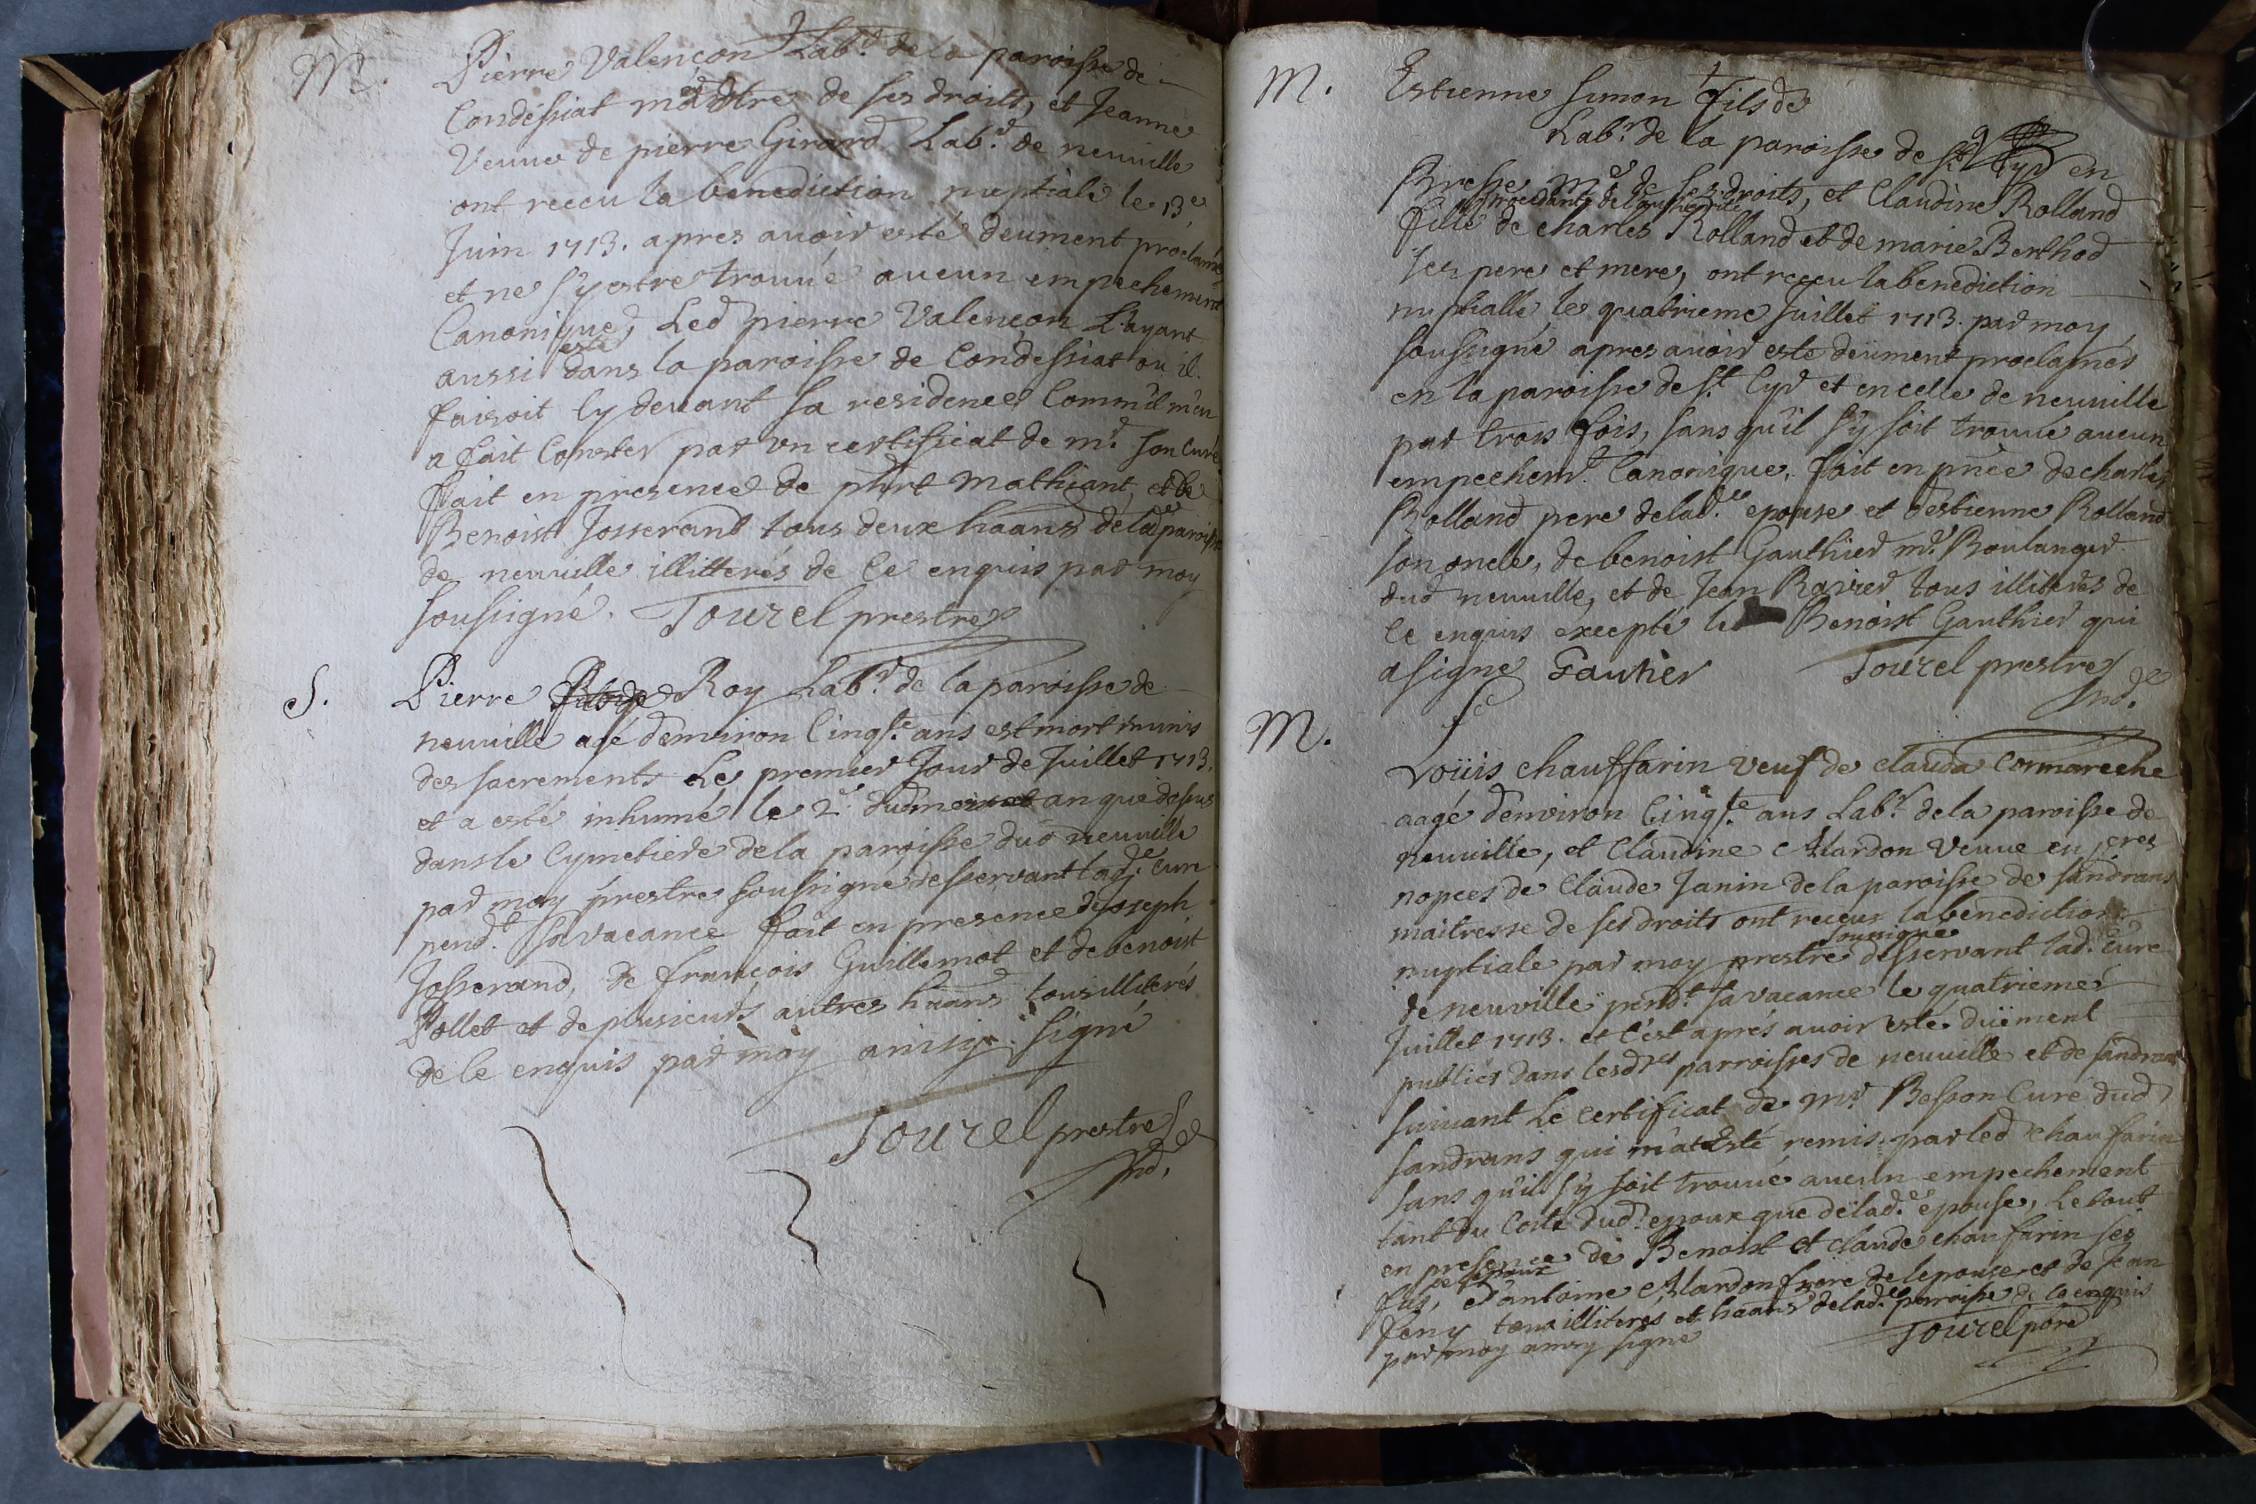 M. Pierre Valençon Lab.r de la paroisse de
Condéssiat maistre de ses droits, et Jeanne
Veuve de pierre Girard Lab.r de neuville
ont receu la benediction nuptiale le 13e
Juin 1713. apres avoir esté deument proclamés
et ne s'y estre trouvé aucun empechement
Canonique, Led pierre Valençon L'ayant
esté
aussi dans la paroisse de Condessiat ou il
faisoit cy devant sa residence Comm'il m'en
a fait Conster par un certificat de mr son curé
fait en presence de phbt Mathiant, et be
Benoist Josserand tous deux haans de lade paroisse
de neuville illitterés de ce enquis par moy
soussigné. Tourel prestre
S. Pierre Roy Lab.r de la paroisse de
neuville agé d'environ Cinq.te ans est mort munis
des sacrements Le premier Jour de Juillet 1713.
et a esté inhumé le 2e dud mois et an que dessus
dans le Cymetiere de la paroisse dud neuville
par moy prestre soussigné desservant lade cure
pend.t sa vacance fait en presence de Joseph
Josserand, de françois Guillemot et de benoist
Pollet et de plusieurs autres haans tous illiterés
de ce enquis par moy ainsy signé
Tourel prestre
M. Estienne Simon fils de
Lab.r de la paroisse de St Cyr en
Bresse me de ses droits, et Claudine Rolland
procedante de l'authorité
fille de charles Rolland et de marie Berthod
ses pere et mere, ont receu la benediction
nuptialle le quatrieme Juillet 1713. par moy
soussigné apres avoir este deüment proclamés
en la paroisse de St Cyr et en celle de neuville
par trois fois, sans qu'il s'y soit trouvé aucun
empechem.t Canonique. fait en pnce de charles
Rolland pere de lad.e epouse et d'estienne Rolland
son oncle, de benoist Gauthier md Boulanger
dud neuville, et de Jean Ravier tous illiterés de
ce enquis excepté le Benoist Gauthier qui
a signé Gautier Tourel prestre
M. Loüis chauffarin veuf de clauda Cormareche
aagé d'environ Cinq.te ans Lab.r de la paroisse de
neuville, et Claudine Alardon veuve en pres
nopces de Claude Janin de la paroisse de sandrans
maitresse de ses droits ont receus la benediction
soussigné
nuptiale par moy prestre desservant lad.e cure
de neuville pend.t sa vacance le quatrieme
Juillet 1713. et c'est aprés avoir esté düement
publiés dans lesdtes parroisses de neuville et de sandrans
suivant Le certificat de mr Besson Curé dud
sandrans qui m'at esté remis par led chaufarin
sans qu'il s'y soit trouvé aucun empechement
tant du Coste dud.t epoux que de lad.e epouse, Le tout
en presence de Benoist et claude chaufarin ses
fils, d'antoine Alardon frere de l'epouse et de Jean
feny tous illiterés et haans de lad.e parroisse de ce enquis
par moy ainsy signé Tourel pbre